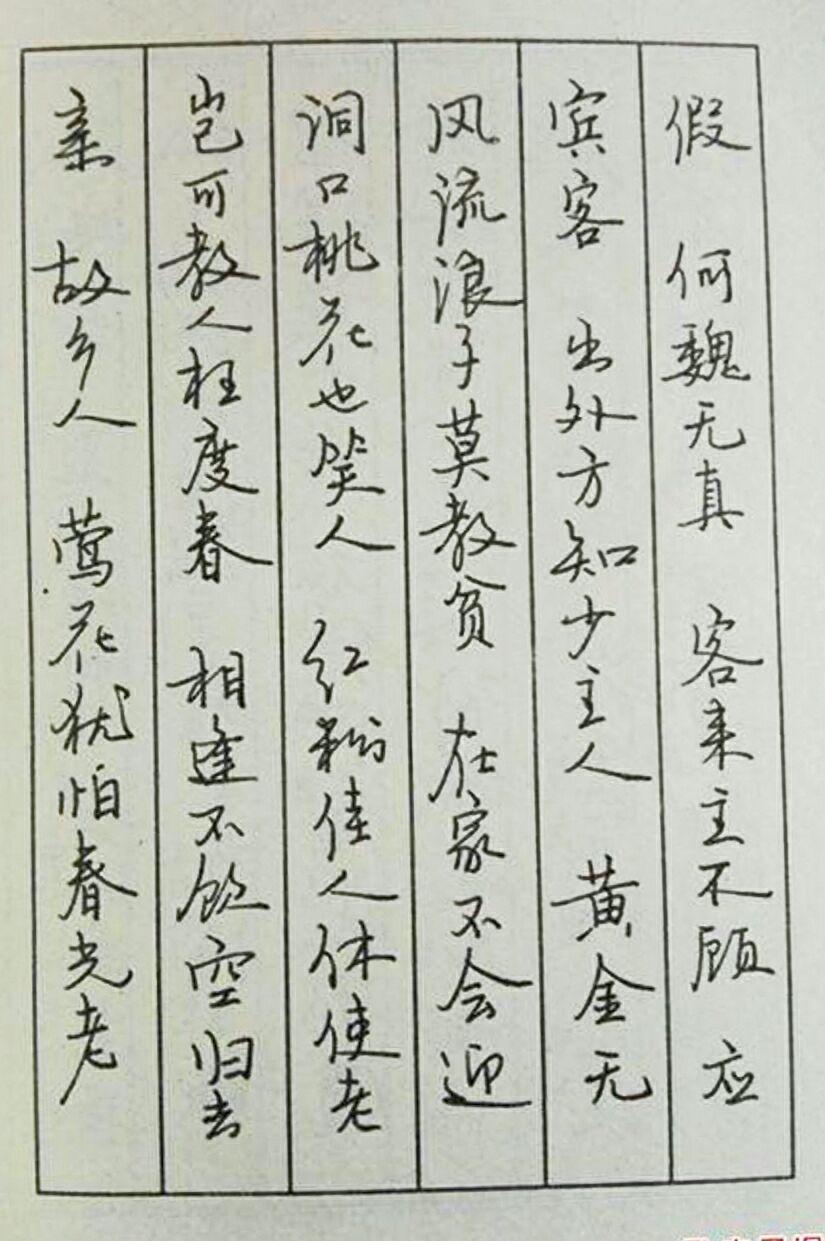 亲 故乡人 莺花犹怕春光老
岂可教人枉度春 相逢不饮空归去
洞口桃花也笑人 红粉佳人休使老
风流浪子莫教贫 在家不会迎
宾客 出外方知少主人 黄金无
假 何魏无真 客来主不顾 应